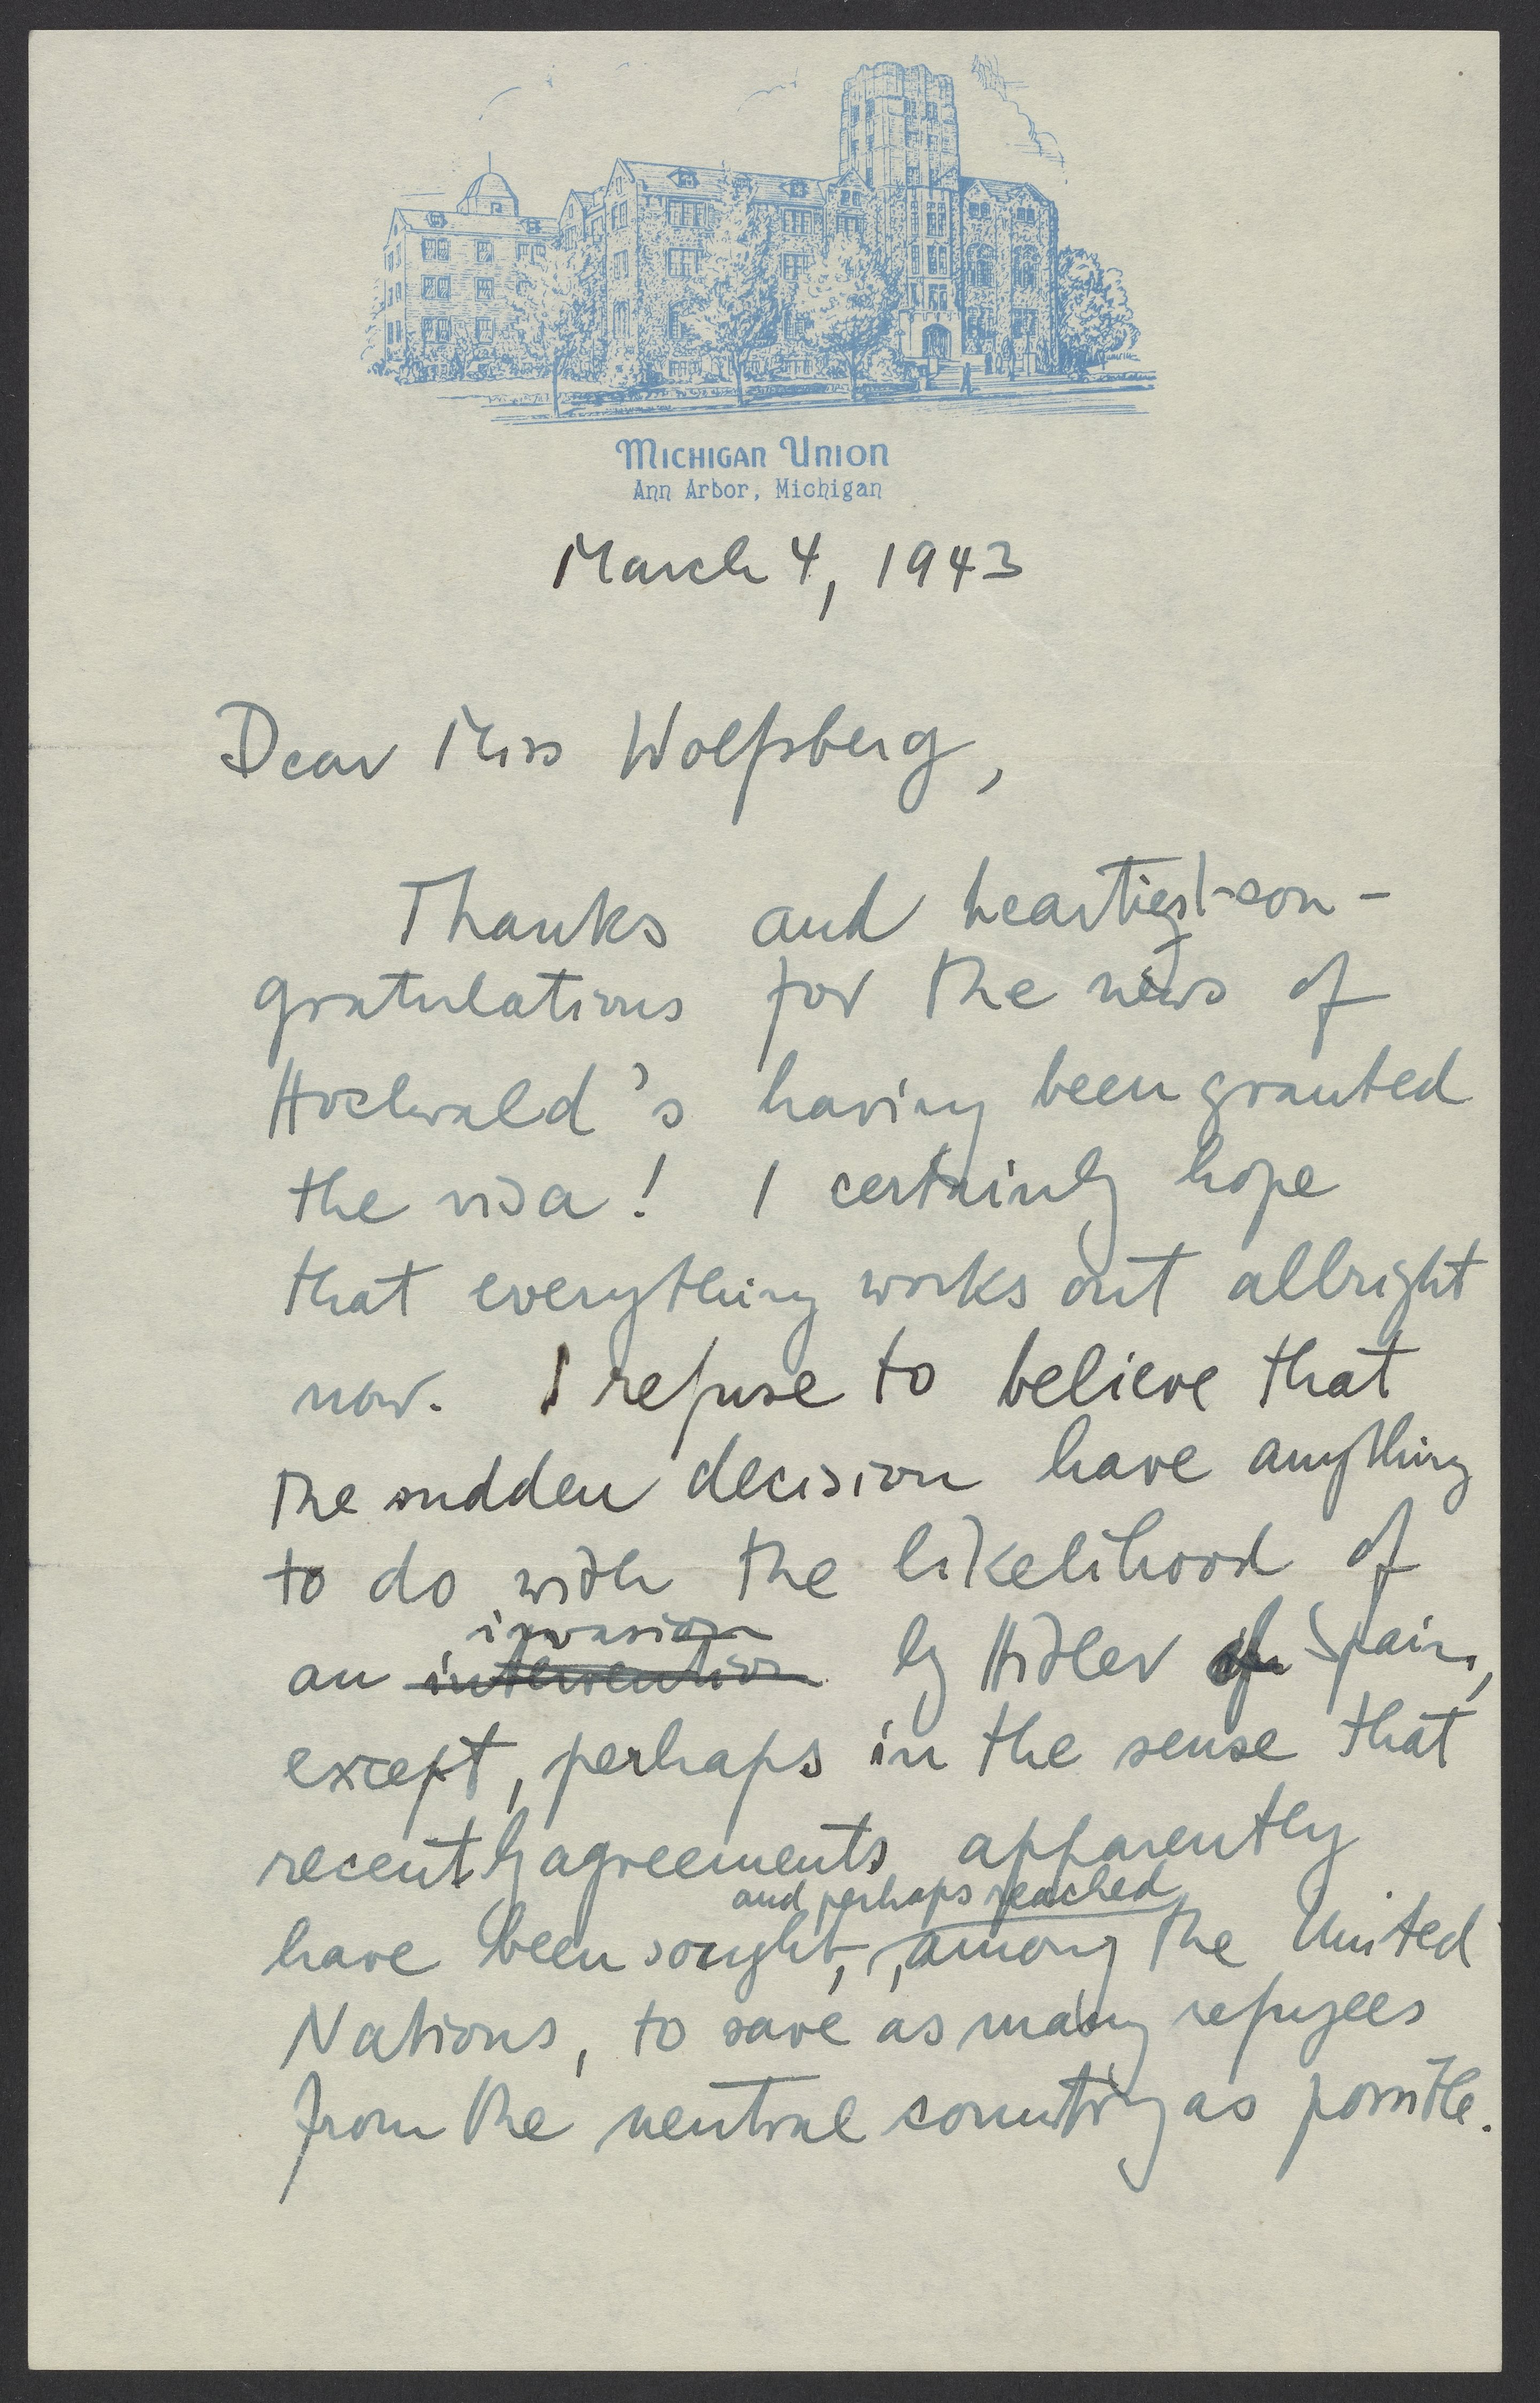 Michigan Union
Ann Arbor, Michigan
March 4, 1943
Dear Miss Wolfsberg,
Thanks and heartiest con-
gratulations for the news of
Hochwald's having been granted
the visa! I certainly hope
that everything works out allright
now. I refuse to believe that
the sudden decision have anything
to do with the likelihood of
invasion
an intervention by Hitler of Spain,
except, perhaps in the sense that
recently agreements apparently
and perhaps reached
have been sought, among the United
Nations, to save as many refugees
from the neutral country as possible.